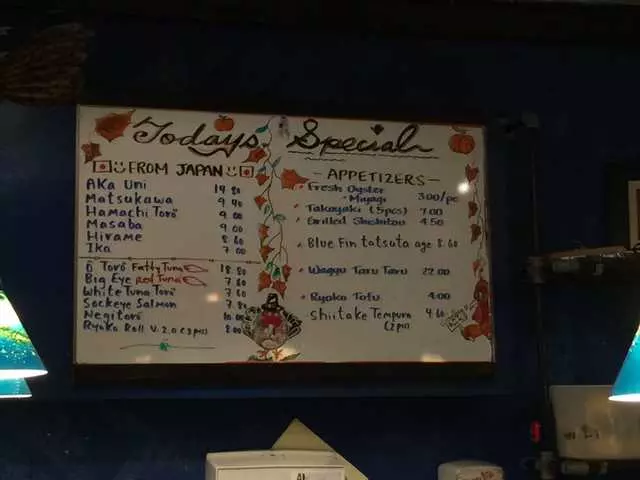 Todays Special
FROM JAPAN
Aka Uni 14.80
Matsukawa 9.40
Hamachi Toro 9.00
Masaba 9.00
Hirame 8.60
Ika 7.00
Toro Fatty Tuna 18.80
Big Eye Red Tuna 7.60
White Tuna Toro 7.60
Sockeye Salmon 7.80
Negitoro 10.00
Ryoko Roll V. 2.0 (3 pcs) 8.00
- APPETIZERS -
Fresh Oyster
• Miyagi 3.00/pc
Takoyaki (5pcs) 7.00
Grilled Shishitou 4.50
Blue Fin tatsuta age 8.60
Wagyu Taru Taru 22.00
Ryoko Tofu 4.00
Shiitake Tempura 4.60
(2pcs)